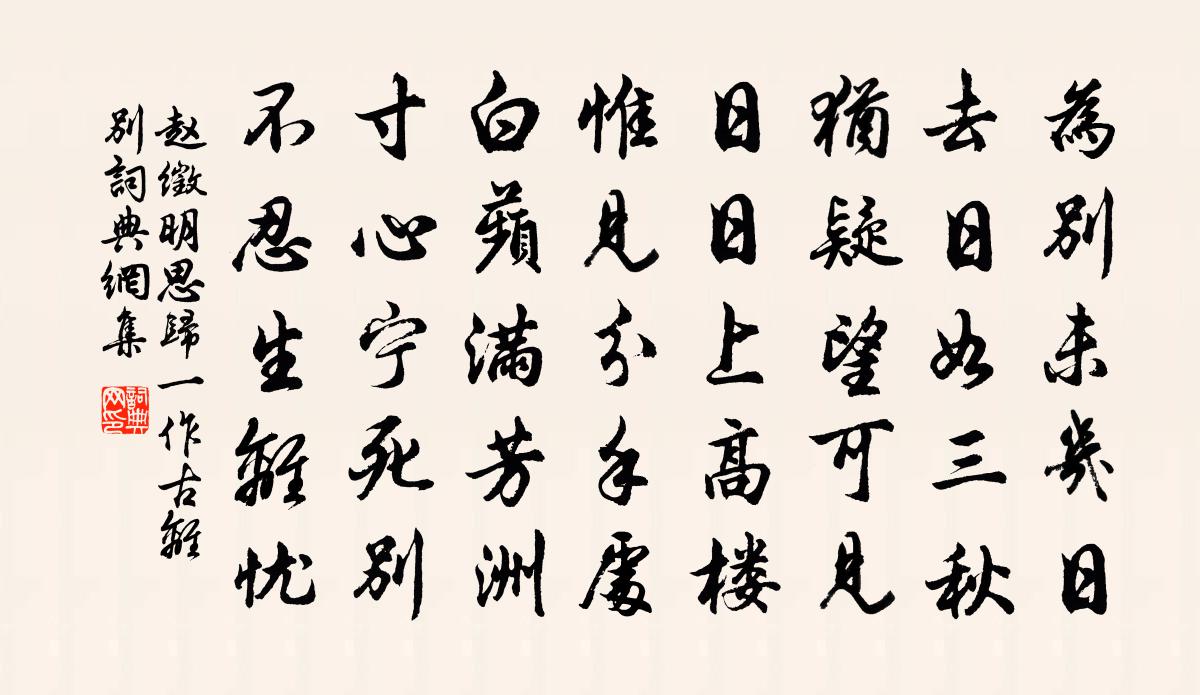 為別未幾日
去日如三秋
猶疑望可見
日日上高楼
惟見分手處
白蘋滿芳洲
寸心宁死別
不忍生離忧
赵徵明思歸一作古離
別詞典網集
詞典网印